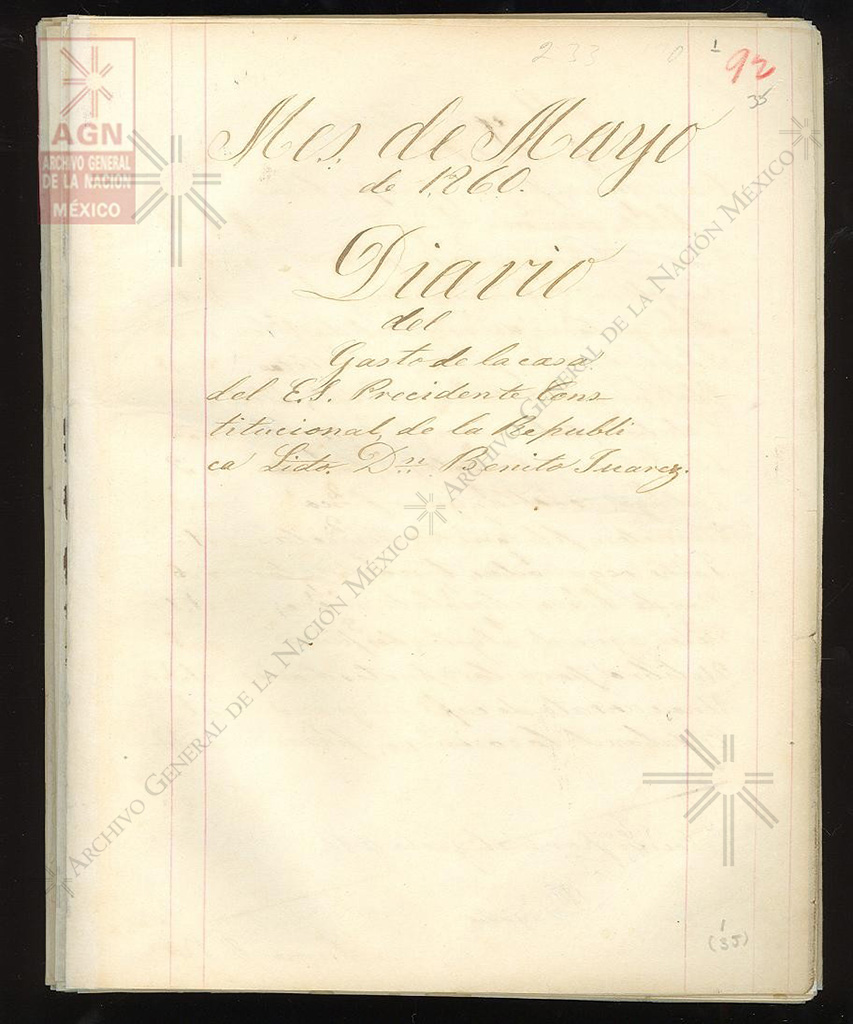 233 0 1 92
35
Mes. de Mayo
de 1860.
Diario
del
Gasto de la casa
del E.S. Precidente Cons
titucional, de la Republi
ca Lido. Dn. Benito Juarez.
1
(35)
AGN
ARCHIVO GENERAL
DE LA NACIÓN
MÉXICO
ARCHIVO GENERAL DE LA NACIÓN MÉXICO
ARCHIVO GENERAL DE LA NACIÓN MÉXICO